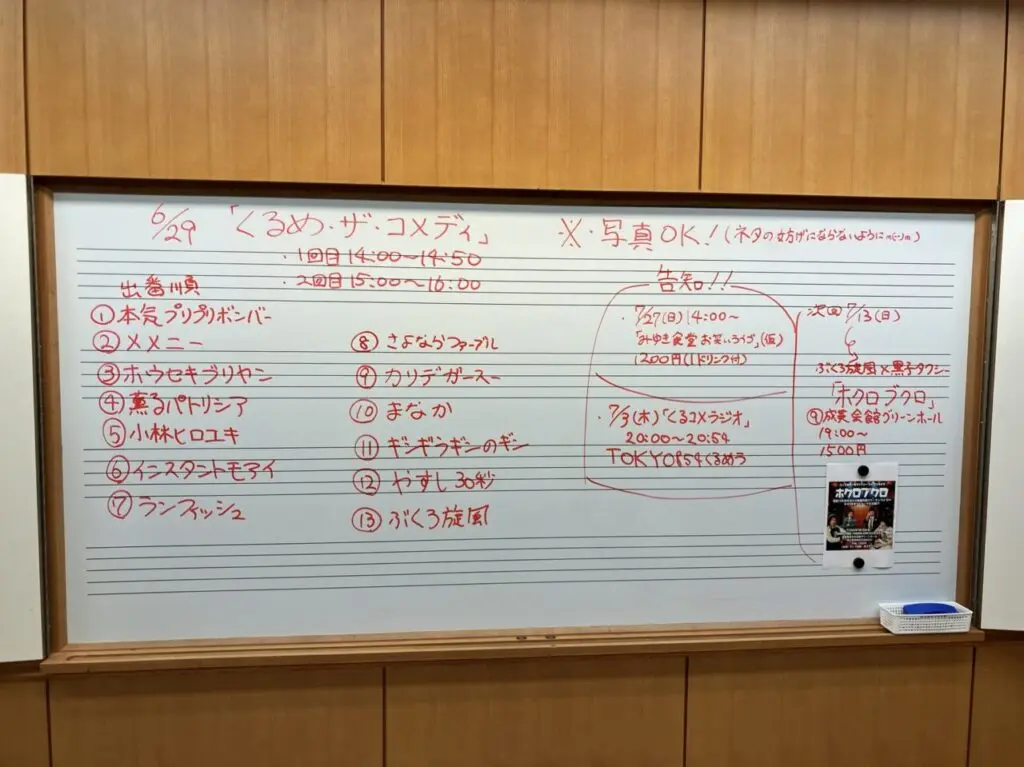 6/29 「くるめ・ザ・コメディ」
・1回目 14:00〜14:50
・2回目 15:00〜16:00
※・写真OK!(ネタの妨げにならないようにm(..)m)
出番順
①本気プリプリボンバー
②メメニー
③ホウセキブリヤン
④薫るパトリシア
⑤小林ヒロユキ
⑥インスタントモアイ
⑦ランフィッシュ
⑧さよならファーブル
⑨カリデガースー
⑩まなか
⑪ギシギラギシのギシ
⑫やすし30秒
⑬ぶくろ旋風
告知!!
・7/27(日)14:00〜
「みゆき食堂お笑いライブ」(仮)
1200円(1ドリンク付)
・7/3(木)「くるコメラジオ」
20:00〜20:54
TOKYO854くるめラ
次回 7/13(日)
ぶくろ旋風×黒子タクシー
「ホクロブクロ」
成美会館グリーンホール
19:00〜
1500円
ホクロブクロ